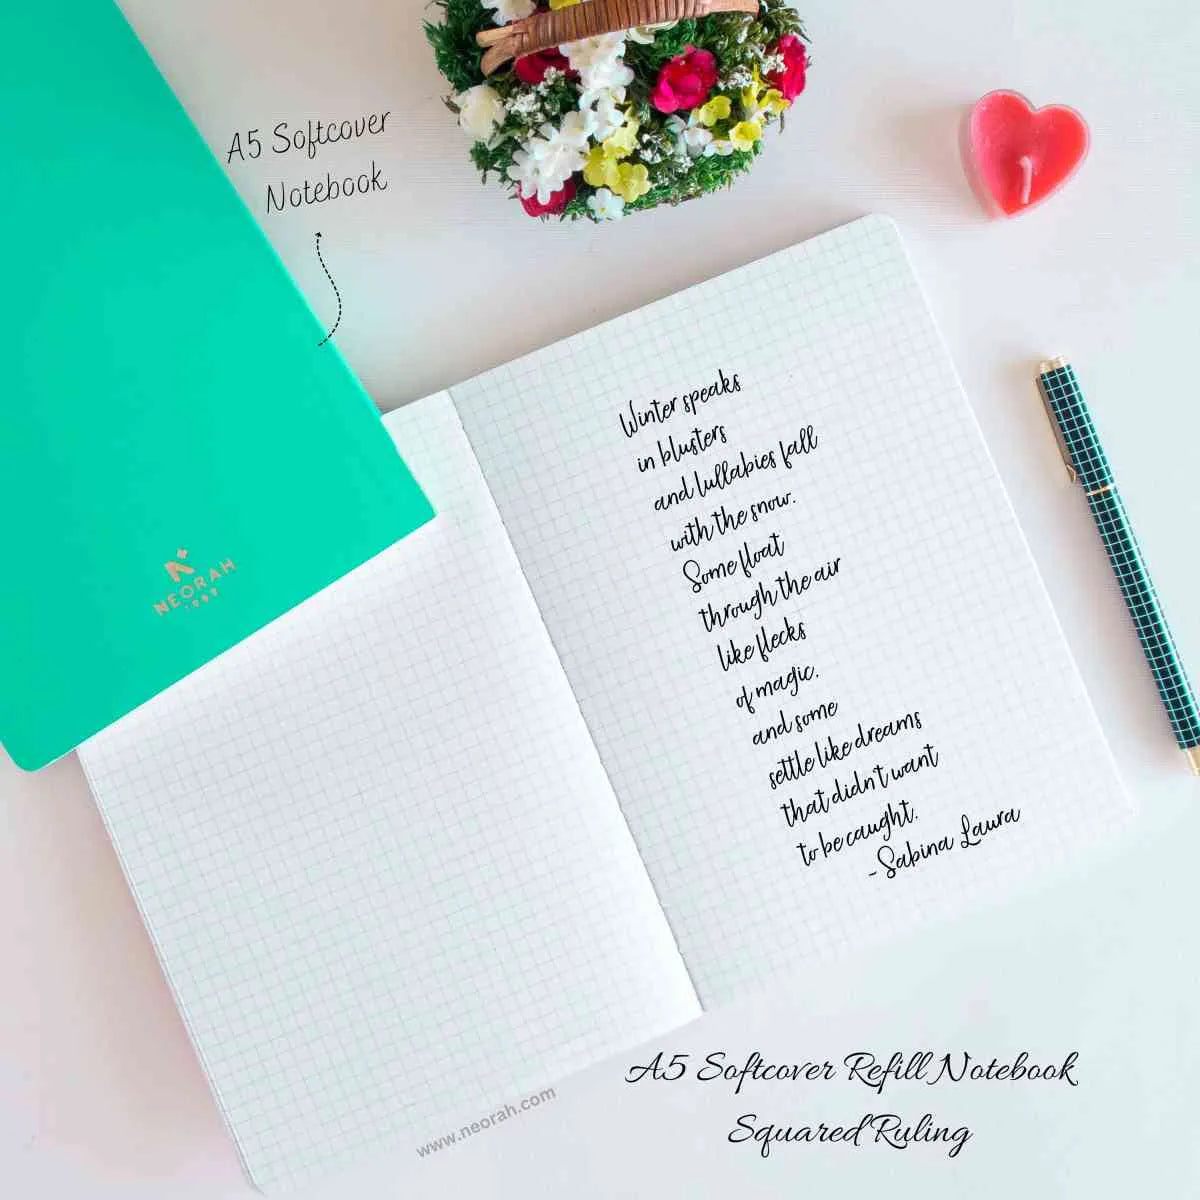 A5 Softcover
Notebook
NEORAH
Winter speaks
in blusters
and lullabies fall
with the snow.
Some float
through the air
like flecks
of magic.
and some
settle like dreams
that didn't want
to be caught.
-Sabina Laura
www.neorah.com
A5 Softcover Refill Notebook
Squared Ruling